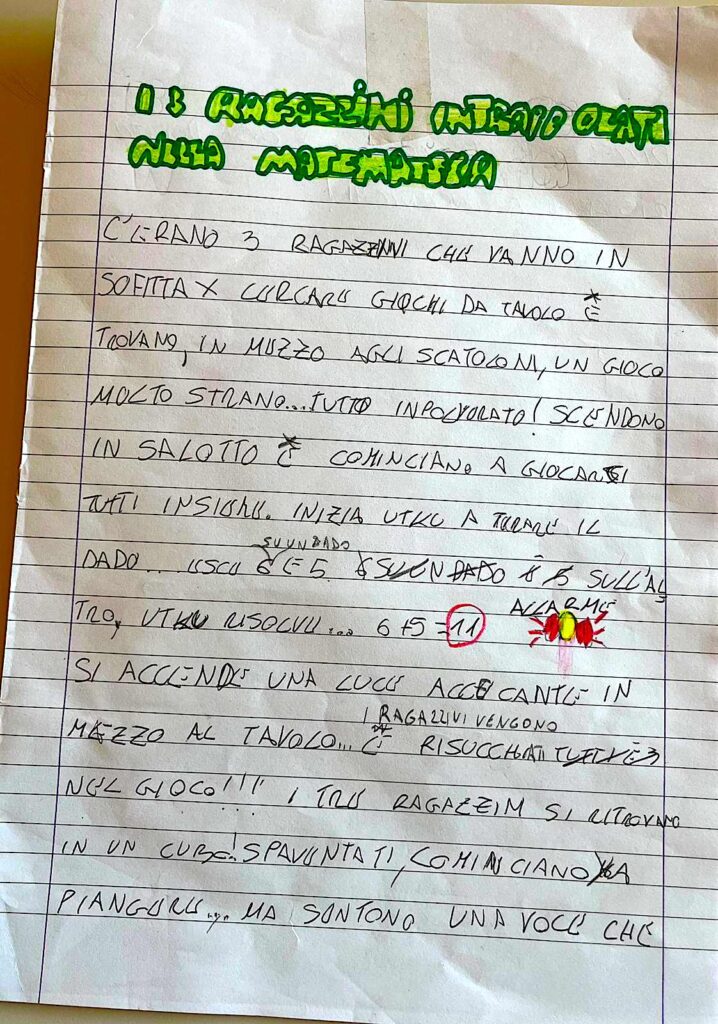 I 3 RAGAZZINI INTRAPPOLATI
NELLA MATEMATICA
C'ERANO 3 RAGAZZINI CHE VANNO IN
SOFITTA X CERCARE GIOCHI DA TAVOLO E
TROVANO, IN MEZZO AGLI SCATOLONI, UN GIOCO
MOLTO STRANO... TUTTO INPOLVORATO! SCENDONO
IN SALOTTO E COMINCIANO A GIOCARE
TUTTI INSIEME. INIZIA UTKU A TIRARE IL
SU UN DADO
DADO... ESCE 6 E 5 SU UN DADO E 5 SULL'AL
TRO, UTKU RISOLVE... 6+5=11
ALLARME
SI ACCENDE UNA LUCE ACCECANTE IN
I RAGAZZINI VENGONO
MEZZO AL TAVOLO... E RISUCCHIATI TUTTI E 3
NEL GIOCO!!! I TRE RAGAZZINI SI RITROVANO
IN UN CUBE! SPAVENTATI, COMINCIANO A
PIANGERE... MA SENTONO UNA VOCE CHE